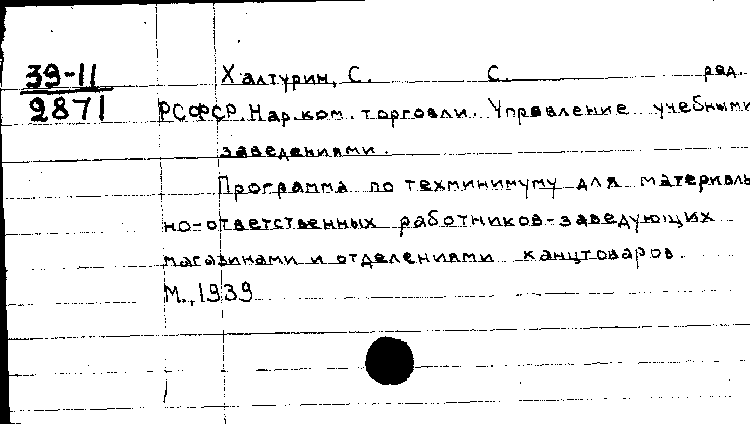 39-11
2871
Халтурин, С. С. ред.
РСФСР. Нар. ком. торговли. Управление учебными
заведениями.
Программа по техминимуму для материаль
но-ответственных работников-заведующих
магазинами и отделениями канцтоваров.
М., 1939